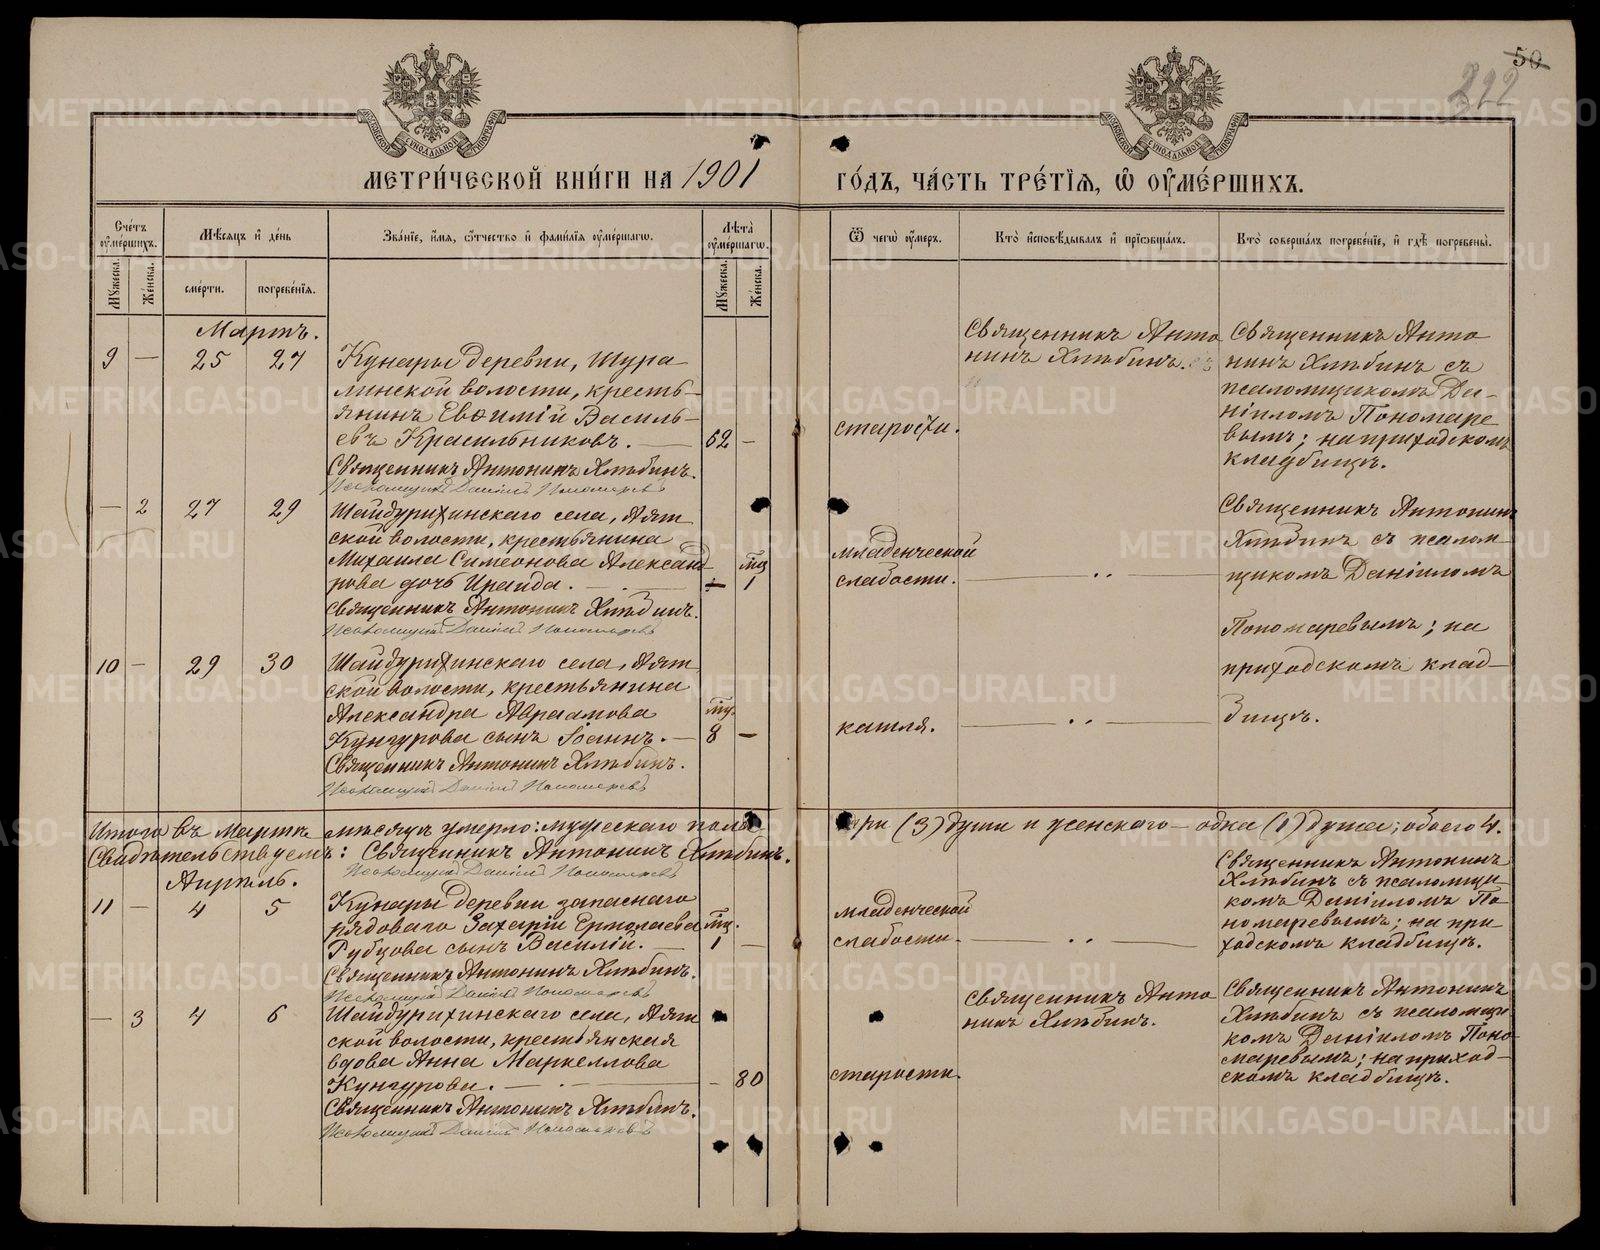 50
222
МЕТРИ́ЧЕСКОЙ КНИ́ГИ НА 1901 ГО́ДЪ, ЧА́СТЬ ТРЕ́ТІѦ, Ѡ҆ ОУ҆МЕ́РШИХЪ.
Сче́тъ оу҆ме́ршихъ.
Мѣ́сѧцъ и҆ де́нь
Зва́нїе, и҆́мѧ, ѻ҆́тчество и҆ фами́лїѧ оу҆ме́ршагѡ.
Лѣ́та оу҆ме́ршагѡ.
Ѿ чегѡ̀ оу҆́меръ.
Кто̀ и҆сповѣ́дывалъ и҆ прїѡбща́лъ.
Кто̀ соверша́лъ погребе́нїе, и҆ гдѣ̀ погребены̀.
Мꙋ́жеска.
Же́нска.
сме́рти.
погребе́нїѧ.
Мꙋ́жеска.
Же́нска.
Мартъ.
9 — 25 27
Кунары деревни, Шура
линской волости, кресть-
янинъ Евѳимій Василь-
евъ Красильниковъ. — 62 —
Священникъ Антонинъ Хлѣбинъ.
Псаломщикъ Даніилъ Пономаревъ
старости.
Священникъ Анто
нинъ Хлѣбинъ.
Священникъ Анто
нинъ Хлѣбинъ съ
псаломщикомъ Да-
ніиломъ Пономаре
вымъ; на приходскомъ
кладбищѣ.
— 2 27 29
Шайдурихинскаго села, Аят
ской волости, крестьянина
Михаила Симеонова Александ
рова дочь Ираида. — мц 1
Священникъ Антонинъ Хлѣбинъ.
Псаломщикъ Даніилъ Пономаревъ
младенческой
слабости.
— .. —
Священникъ Антонинъ
Хлѣбинъ съ псалом-
щикомъ Даніиломъ
Пономаревымъ; на
приходскомъ клад-
бищѣ.
10 — 29 30
Шайдурихинскаго села, Аят
ской волости, крестьянина
Александра Авраамова мц.
Кунгурова сынъ Іоаннъ. — 8 —
Священникъ Антонинъ Хлѣбинъ.
Псаломщикъ Даніилъ Пономаревъ
кашля.
— .. —
Итого въ мартѣ мѣсяцѣ умерло: мужескаго пола три (3) души и женскаго — одна (1) душа; обоего 4.
Свидѣтельствуемъ: Священникъ Антонинъ Хлѣбинъ.
Псаломщикъ Даніилъ Пономаревъ
Апрѣль.
11 — 4 5
Кунары деревни запаснаго
рядоваго Захаріи Ермолаева мц.
Рубцова сынъ Василій. — 1 —
Священникъ Антонинъ Хлѣбинъ.
Псаломщикъ Даніилъ Пономаревъ
младенческой
слабости.
— .. —
Священникъ Антонинъ
Хлѣбинъ съ псаломщи
комъ Даніиломъ По
номаревымъ; на при
ходскомъ кладбищѣ.
— 3 4 6
Шайдурихинскаго села, Аят
ской волости, крестьянская
вдова Анна Маркеллова
Кунгурова. — . — — 80
Священникъ Антонинъ Хлѣбинъ.
Псаломщикъ Даніилъ Пономаревъ
старости.
Священникъ Анто
нинъ Хлѣбинъ.
Священникъ Антонинъ
Хлѣбинъ съ псаломщи
комъ Даніиломъ Поно
маревымъ; на приход-
скомъ кладбищѣ.
METRIKI.GASO-URAL.RU